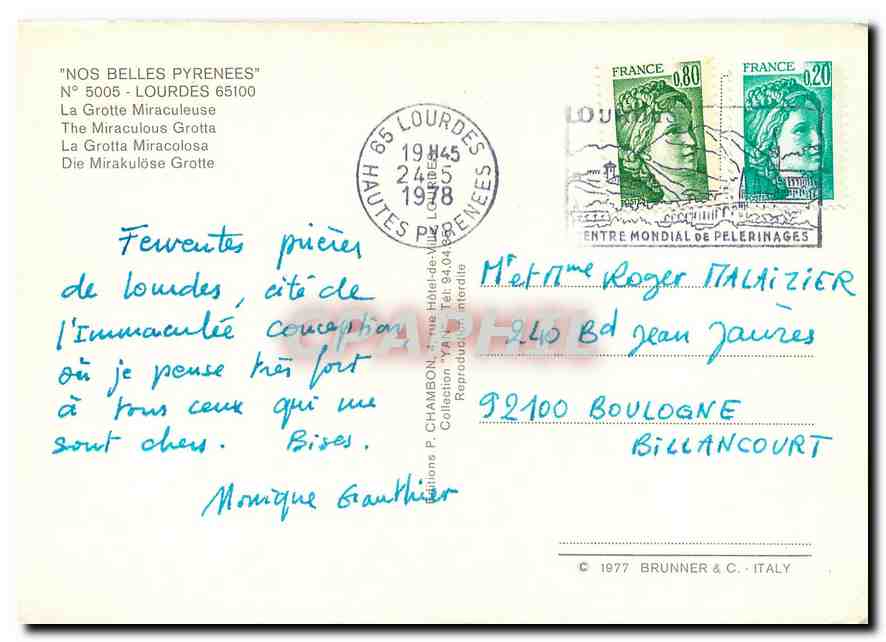 "NOS BELLES PYRENEES"
N° 5005 - LOURDES 65100
La Grotte Miraculeuse
The Miraculous Grotta
La Grotta Miracolosa
Die Mirakulöse Grotte
FRANCE 0,80
FRANCE 0,20
65 LOURDES
19H45
24-5
1978
HAUTES PYRENEES
LOURDES
CENTRE MONDIAL DE PELERINAGES
Ferventes prières
de Lourdes, cité de
l'Immaculée conception,
où je pense très fort
à tous ceux qui me
sont chers. Bises.
Monique Gauthier
Editions P. CHAMBON, 4, rue Hôtel-de-Ville LOURDES
Collection "YAN" Tél: 94.04
Reproduction interdite
Mr et Mme Roger MALAIZIER
240 Bd Jean Jaurès
92100 BOULOGNE
BILLANCOURT
© 1977 BRUNNER & C. - ITALY
CPAPHIL